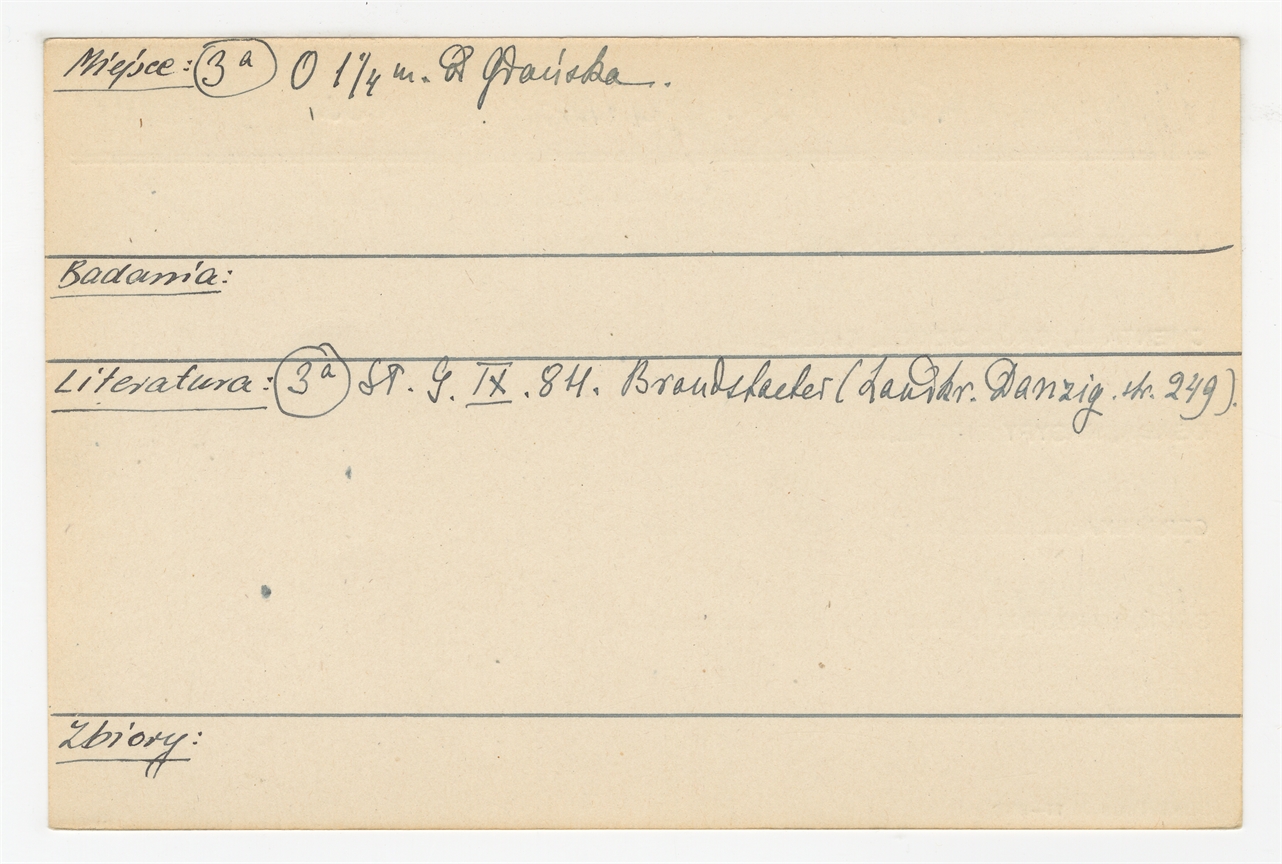 Miejsce: 3a O 1 1/4 m. Gdańska.
Badania:
Literatura: 3a St. G. IX. 811. Brandstaeter (Landkr. Danzig. str. 249).
Zbiory: